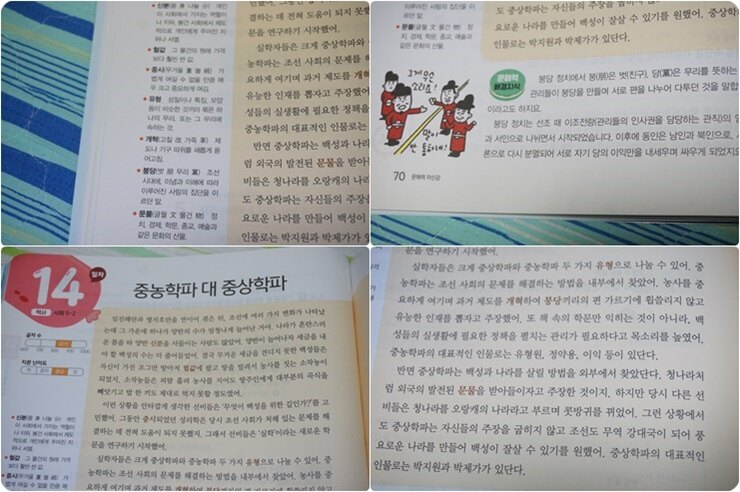 신분(몸 身 나눌 分) 개인
의 사회에서 가지는 역할이
나 지위. 봉건 사회에서 제도
적으로 개인에게 주어진 지
위나 서열.
헐값 그 물건의 원래 가격
보다 훨씬 싼 값.
중시(무거울 重 볼 視) 가
볍게 여길 수 없을 만큼 매
우 크고 중요하게 여김.
유형 성질이나 특징, 모양
등이 비슷한 것끼리 묶은 하
나의 무리. 또는 그 무리에
속하는 것.
개혁(고칠 改 가죽 革) 제
도나 기구 따위를 새롭게 뜯
어고침.
붕당(벗 朋 무리 黨) 조선
시대에, 이념과 이해에 따라
이루어진 사림의 집단을 이
르던 말.
문물(글월 文 물건 物) 정
치, 경제, 학문, 종교, 예술과
같은 문화의 산물.
결하는 데 전혀 도움이 되지 못했
문을 연구하기 시작했어.
실학자들은 크게 중상학파와
농학파는 조선 사회의 문제를 해
요하게 여기며 과거 제도를 개혁
유능한 인재를 뽑자고 주장했어
성들의 실생활에 필요한 정책을
중농학파의 대표적인 인물로는
반면 중상학파는 백성과 나라
럼 외국의 발전된 문물을 받아
비들은 청나라를 오랑캐의 나라
도 중상학파는 자신들의 주장
요로운 나라를 만들어 백성이
인물로는 박지원과 박제가가 있
이루어진 사림의 집단을 이
르던 말.
문물(글월 文 물건 物) 정
치, 경제, 학문, 종교, 예술과
같은 문화의 산물.
도 중상학파는 자신들의 주장을 굽히지 않고
요로운 나라를 만들어 백성이 잘살 수 있기를 원했어. 중상학
인물로는 박지원과 박제가가 있단다.
문해력
배경지식
붕당 정치에서 붕(朋)은 벗(친구), 당(黨)은 무리를 뜻하는
관리들이 붕당을 만들며 서로 편을 나누어 다투던 것을 말합
이라고도 하지요.
붕당 정치는 선조 때 이조전랑(관리들의 인사권을 담당하는 관직)의 일
과 서인으로 나뉘면서 시작되었습니다. 이후에 동인은 남인과 북인으로,
론으로 다시 분열되어 서로 자기 당의 이익만을 내세우며 싸우게 되었지요
그게 무슨
소리요!
말이
안 통하네!
70 문해력 자신감
14
일차
역사 사회 5-2
중농학파 대 중상학파
글자 수
600 700 800 900 1000
지문 난이도
임진왜란과 병자호란을 연이어 겪은 뒤, 조선에 여러 가지 변화가 나타났
는데 그 가운데 하나가 양반의 수가 엄청나게 늘어난 거야. 나라가 혼란스러
운 틈을 타 양반 신분을 사들이는 사람도 많았어. 양반이 늘어나자 세금을 내
야 할 백성의 수는 더 줄어들었어. 결국 무거운 세금을 견디지 못한 백성들은
자신이 가진 조그만 땅마저 헐값에 팔고 땅을 빌려서 농사를 짓는 소작농이
되었지. 소작농들은 피땀 흘려 농사를 지어도 땅주인에게 대부분의 곡식을
빼앗기고 밥 한 끼도 제대로 먹지 못할 정도였어.
이런 상황을 안타깝게 생각한 선비들은 '무엇이 백성을 위한 길인가?'를 고
민했어. 그동안 중시되었던 성리학은 당시 조선 사회가 처해 있는 문제를 해
결하는 데 전혀 도움이 되지 못했지. 그래서 선비들은 '실학'이라는 새로운 학
문을 연구하기 시작했어.
실학자들은 크게 중상학파와 중농학파 두 가지 유형으로 나눌 수 있어. 중
농학파는 조선 사회의 문제를 해결하는 방법을 내부에서 찾았어. 농사를 중
신분(몸 身 나눌 分) 개인
의 사회에서 가지는 역할이
나 지위. 봉건 사회에서 제도
적으로 개인에게 주어진 지
위나 서열.
헐값 그 물건의 원래 가격
보다 훨씬 싼 값.
중시(무거울 重 볼 視) 가
볍게 여길 수 없을 만큼 매
문을 연구하기 시작했어.
실학자들은 크게 중상학파와 중농학파 두 가지 유형으로 나눌 수 있어. 중
농학파는 조선 사회의 문제를 해결하는 방법을 내부에서 찾았어. 농사를 중
요하게 여기며 과거 제도를 개혁하여 붕당끼리의 편 가르기에 휩쓸리지 않고
유능한 인재를 뽑자고 주장했어. 또 책 속의 학문만 익히는 것이 아니라, 백
성들의 실생활에 필요한 정책을 펼치는 관리가 필요하다고 목소리를 높였어.
중농학파의 대표적인 인물로는 유형원, 정약용, 이익 등이 있단다.
반면 중상학파는 백성과 나라를 살릴 방법을 외부에서 찾았단다. 청나라처
럼 외국의 발전된 문물을 받아들이자고 주장한 것이지. 하지만 당시 다른 선
비들은 청나라를 오랑캐의 나라라고 부르며 콧방귀를 뀌었어. 그런 상황에서
도 중상학파는 자신들의 주장을 굽히지 않고 조선도 무역 강대국이 되어 풍
요로운 나라를 만들어 백성이 잘살 수 있기를 원했어. 중상학파의 대표적인
인물로는 박지원과 박제가가 있단다.